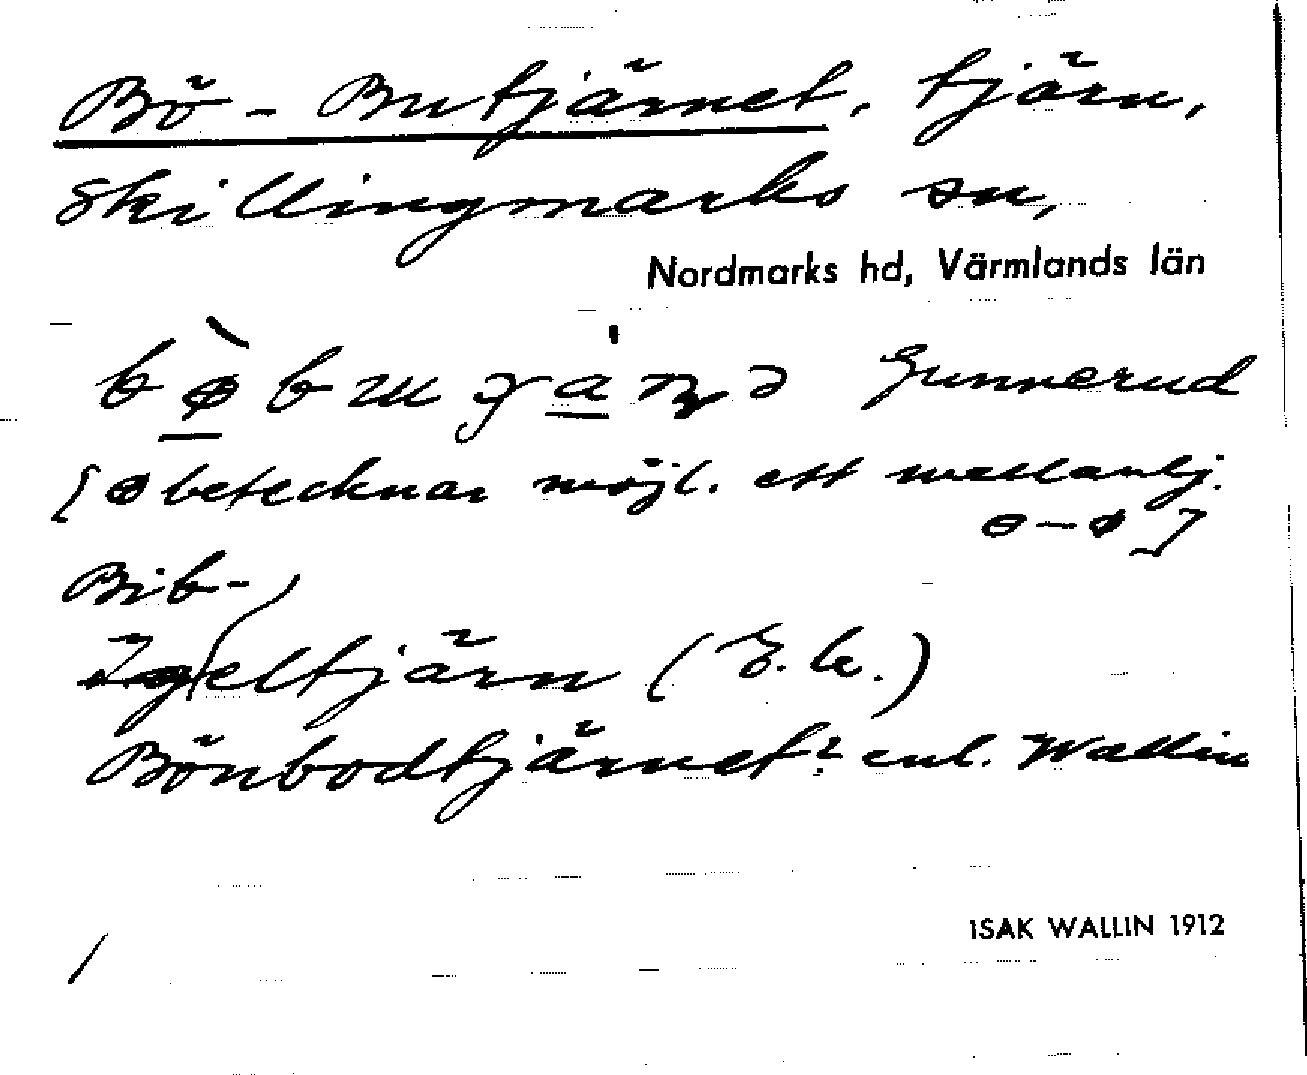 Bö-Butjärnet, tjärn,
Skillingmarks sn,
Nordmarks hd, Värmlands län
Gunnerud
[ø betecknar möjl. ett mellanlj.
ɵ-ø]
Bib-
Igeltjärn (E.k.)
Bönbodtjärnet? enl. Wallin
ISAK WALLIN 1912